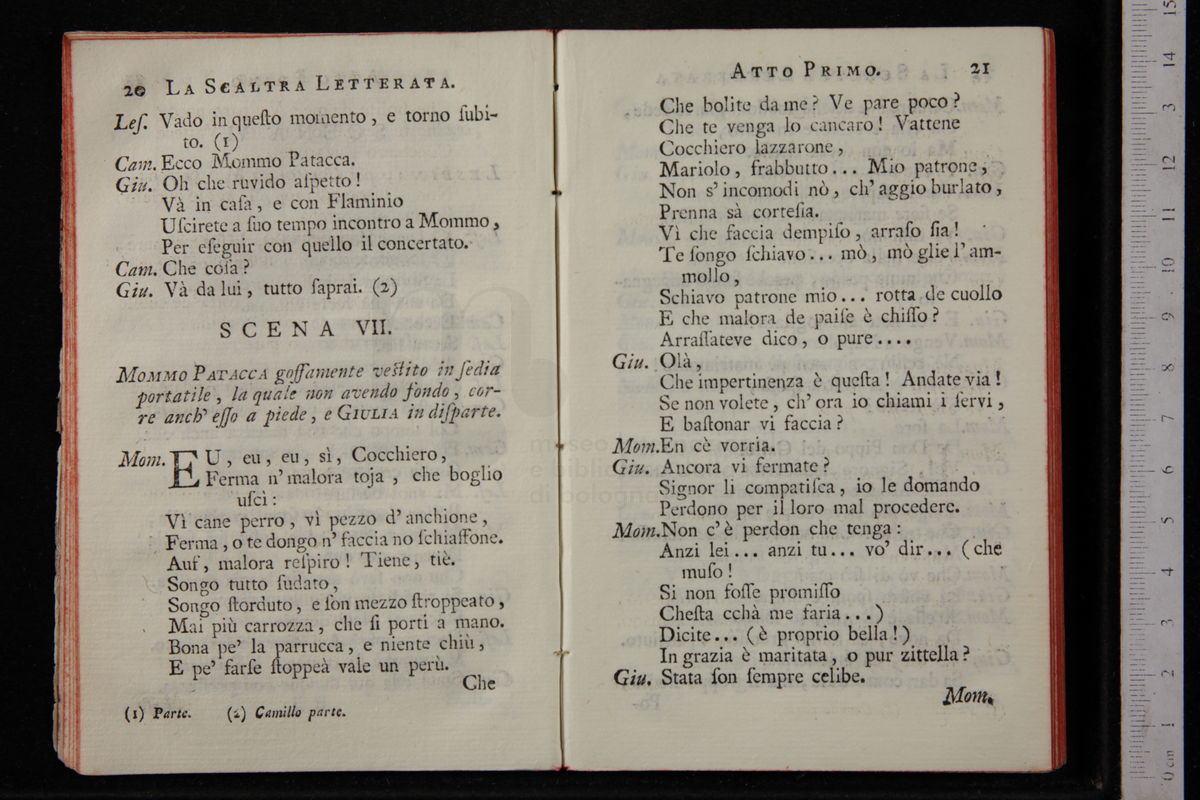 20 LA SCALTRA LETTERATA.
Leſ. Vado in queſto momento, e torno ſubi-
to. (1)
Cam. Ecco Mommo Patacca.
Giu. Oh che ruvido aſpetto!
Và in caſa, e con Flaminio
Uſcirete a ſuo tempo incontro a Mommo,
Per eſeguir con quello il concertato.
Cam. Che coſa?
Giu. Và da lui, tutto ſaprai. (2)
SCENA VII.
MOMMO PATACCA goffamente veſtito in ſedia
portatile, la quale non avendo fondo, cor-
re anch' eſſo a piede, e GIULIA in diſparte.
Mom. EU, eu, eu, sì, Cocchiero,
Ferma n' malora toja, che boglio
uſcì:
Vì cane perro, vì pezzo d' anchione,
Ferma, o te dongo n' faccia no ſchiaffone.
Auf, malora reſpiro! Tiene, tiè.
Songo tutto ſudato,
Songo ſtorduto, e ſon mezzo ſtroppeato,
Mai più carrozza, che ſi porti a mano.
Bona pe' la parrucca, e niente chiù,
E pe' farſe ſtoppeà vale un perù.
Che
(1) Parte. (2) Camillo parte.
ATTO PRIMO. 21
Che bolite da me? Ve pare poco?
Che te venga lo cancaro! Vattene
Cocchiero lazzarone,
Mariolo, frabbutto... Mio patrone,
Non s' incomodi nò, ch' aggio burlato,
Prenna sà corteſia.
Vì che faccia dempiſo, arraſo ſia!
Te ſongo ſchiavo... mò, mò glie l' am-
mollo,
Schiavo patrone mio... rotta de cuollo
E che malora de paiſe è chiſſo?
Arraſſateve dico, o pure....
Giu. Olà,
Che impertinenza è queſta! Andate via!
Se non volete, ch' ora io chiami i ſervi,
E baſtonar vi faccia?
Mom. En cè vorria.
Giu. Ancora vi fermate?
Signor li compatiſca, io le domando
Perdono per il loro mal procedere.
Mom. Non c' è perdon che tenga:
Anzi lei... anzi tu... vo' dir... (che
muſo!
Si non foſſe promiſſo
Cheſta cchà me faria...)
Dicite... (è proprio bella!)
In grazia è maritata, o pur zittella?
Giu. Stata ſon ſempre celibe.
Mom.